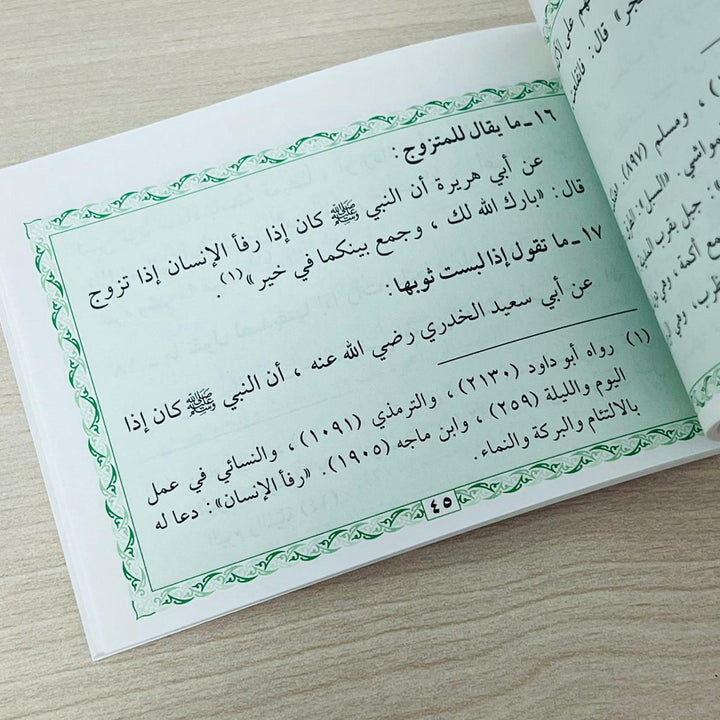 ١٦ ـ ما يقال للمتزوج :
عن أبي هريرة أن النبي ﷺ كان إذا رفأ الإنسان إذا تزوج
قال : «بارك الله لك ، وجمع بينكما في خير»(١).
١٧ ـ ما تقول إذا لبست ثوبها :
عن أبي سعيد الخدري رضي الله عنه ، أن النبي ﷺ كان إذا
(١) رواه أبو داود (٢١٣٠) ، والترمذي (١٠٩١) ، والنسائي في عمل
اليوم والليلة (٢٥٩) ، وابن ماجه (١٩٠٥). «رفأ الإنسان» : دعا له
بالالتئام والبركة والنماء.
٤٥
قال : فانقلعت
، ومسلم (٨٩٧)
جبل بقرب المدينة
أكمة ، وهي